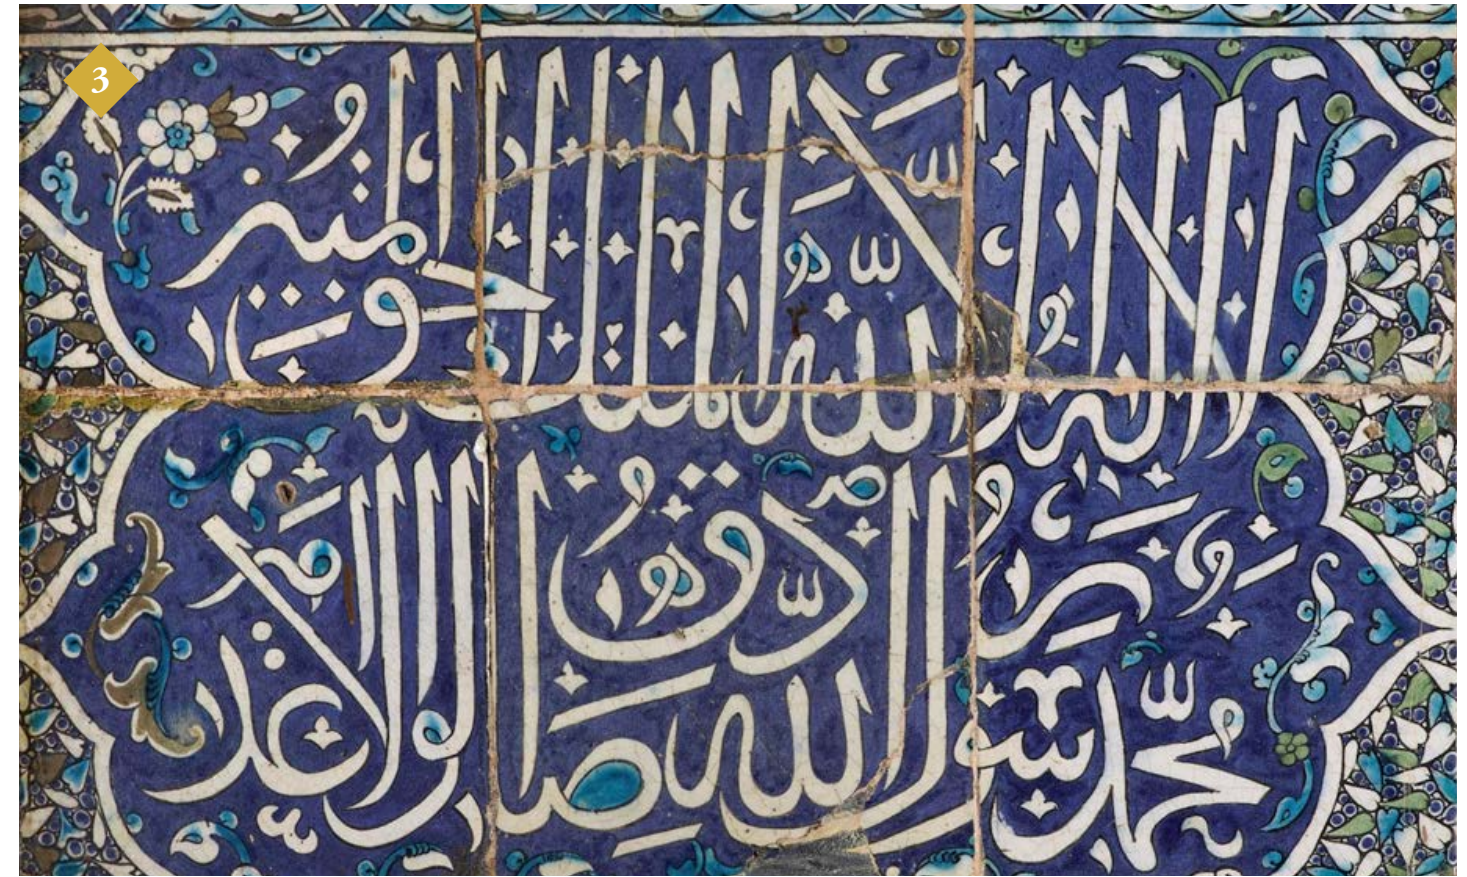 3
لا اله الا الله الملك الحق المبين
محمد رسول الله صادق الوعد الامين